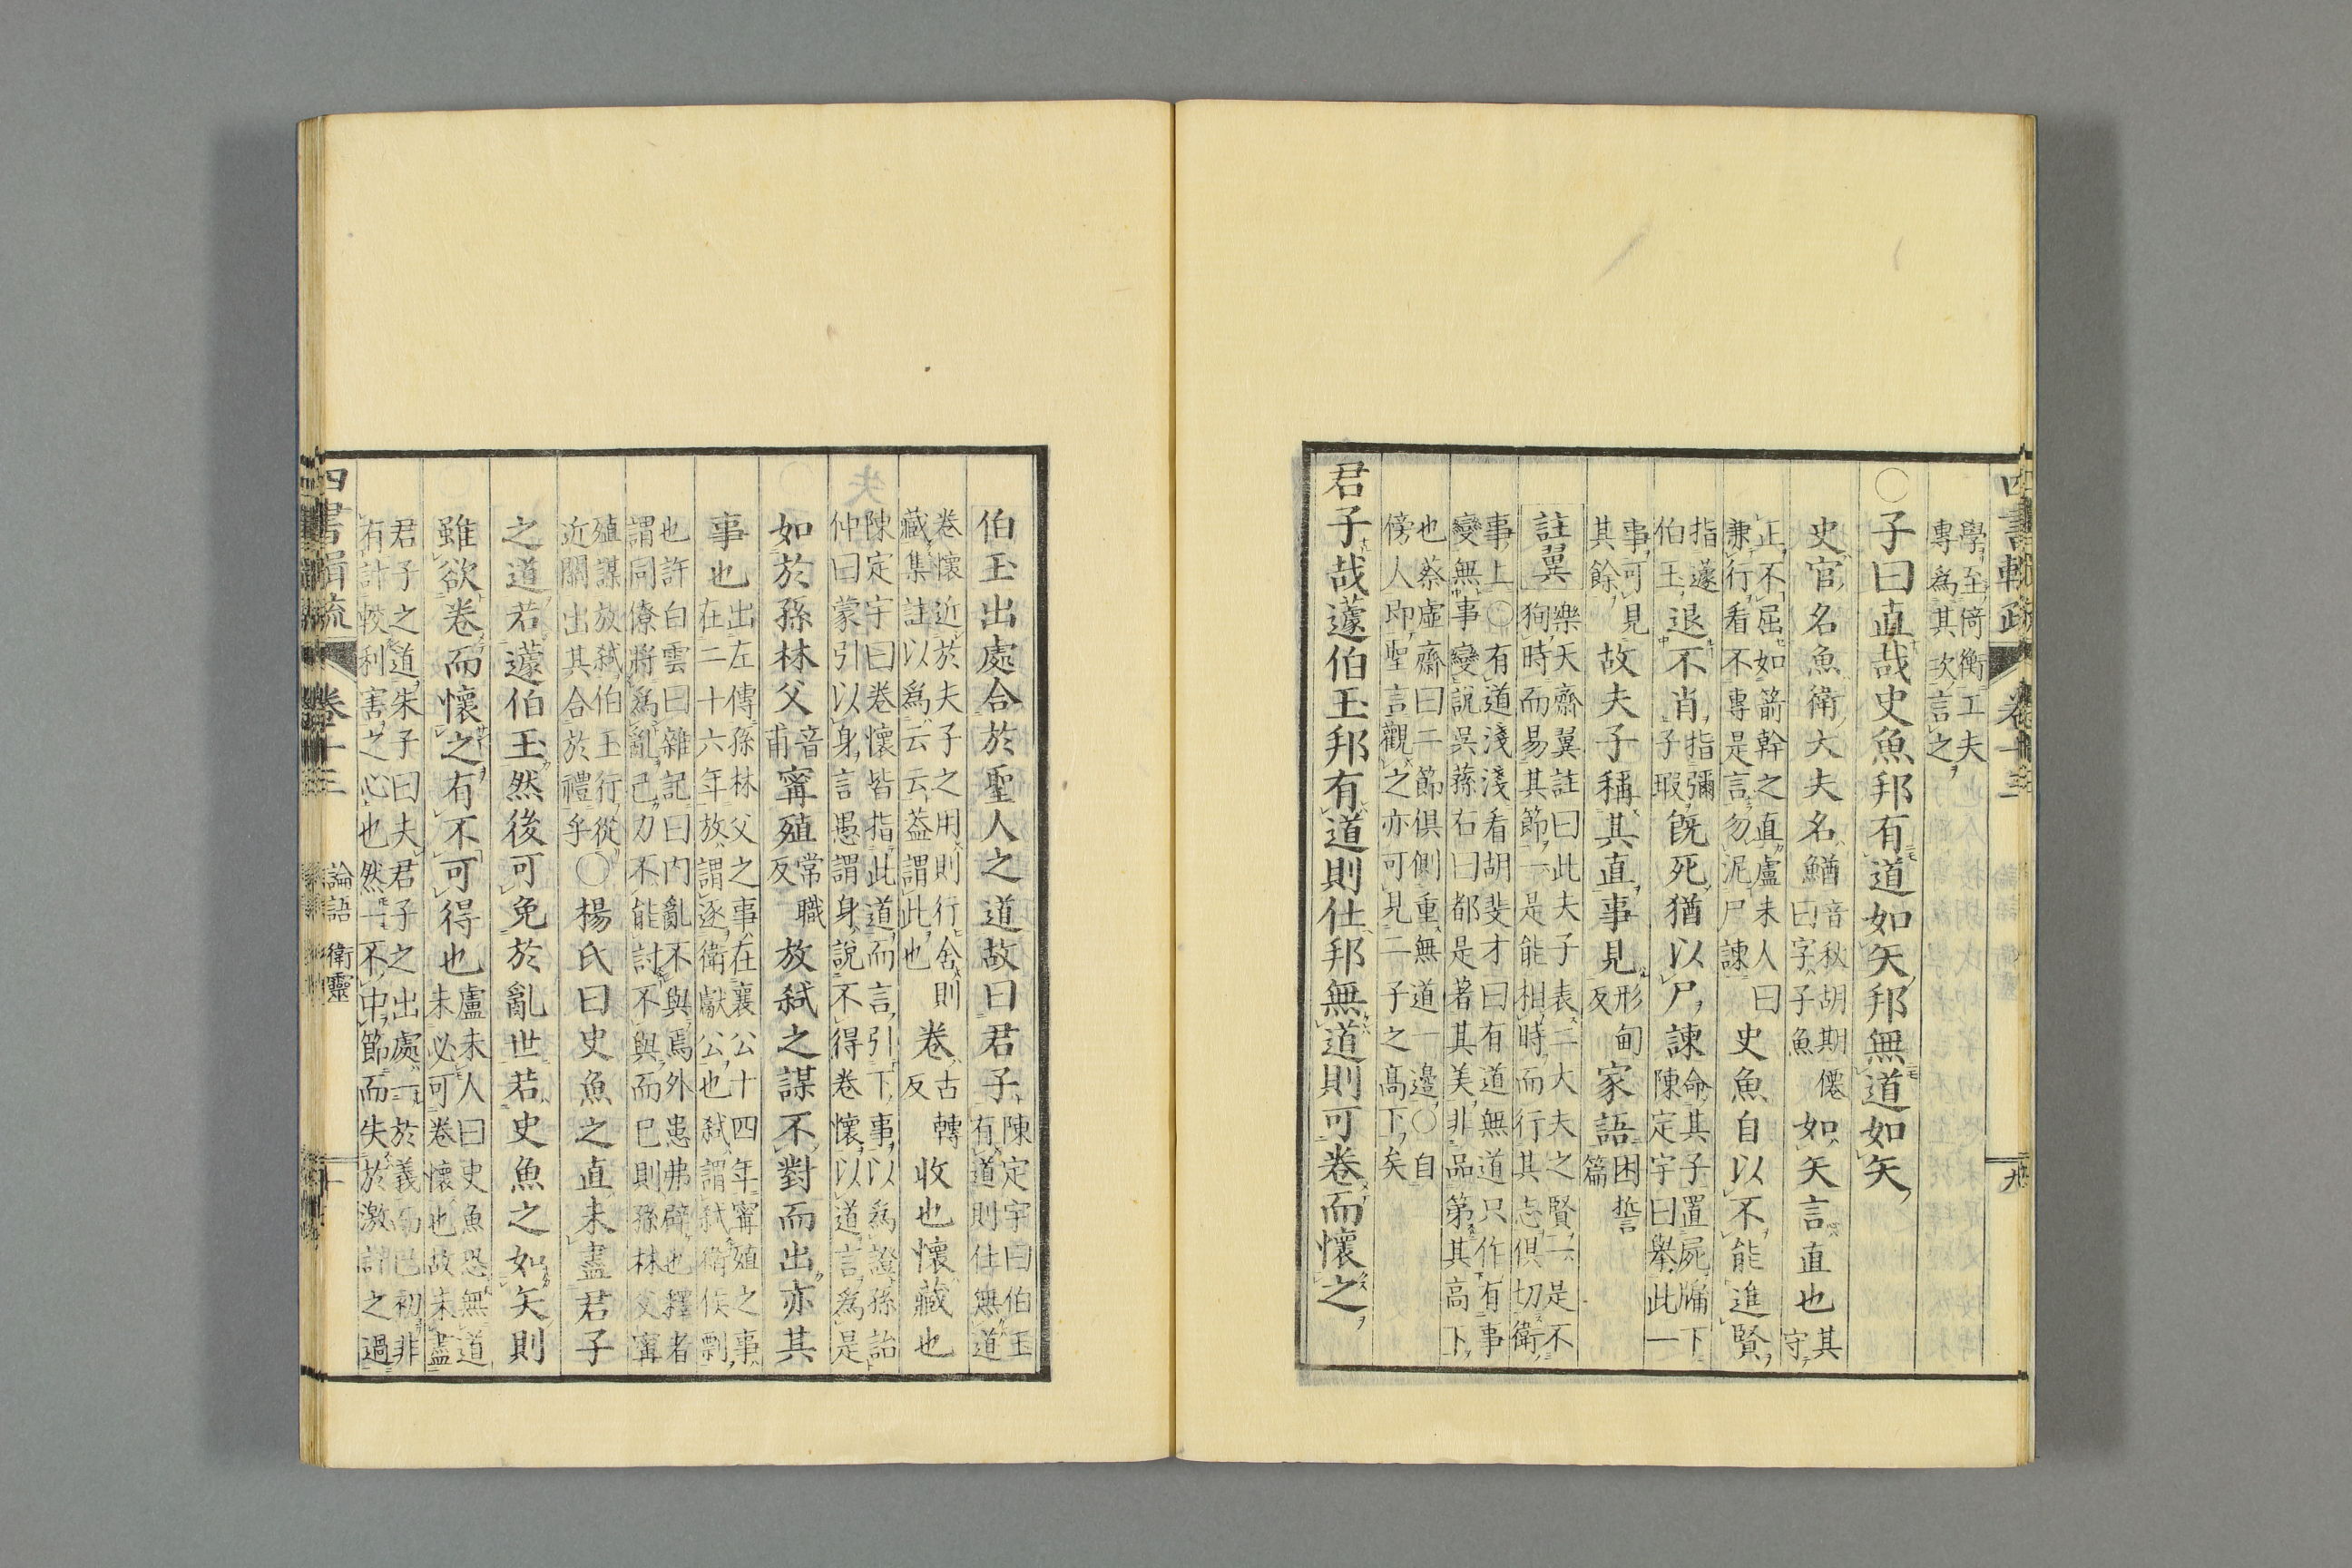 四書輯疏 卷十三 論語 衛靈 九
學至倚衡工夫
專爲其次言之
○子曰直哉史魚邦有道如矢邦無道如矢
史官名魚衛大夫名鰌音秋胡期僊曰字子魚如矢言直也其守
正不屈如箭幹之直盧未人曰
兼行看不專是言勿泥尸諫史魚自以不能進賢
指蘧伯玉退不肖指彌子瑕旣死猶以尸諫命其子置屍牖下陳定宇曰舉此一
事可見其餘故夫子稱其直事見形甸反家語困誓篇
註翼樂天齋翼註曰此夫子表二大夫之賢一是不
狥時而易其節一是能相時而行其志俱切衛
事上○有道淺淺看胡斐才曰有道無道只作有事
變無事變說呉蓀右曰都是著其美非品第其高下
也蔡虛齋曰二節俱側重無道一邊○自
傍人即聖言觀之亦可見二子之高下矣
君子哉蘧伯玉邦有道則仕邦無道則可卷而懷之
伯玉出處合於聖人之道故曰君子陳定宇曰伯玉有道則仕無道
卷懷近於夫子之用則行舍則
藏集註以爲云云葢謂此也卷古轉反收也懷藏也
陳定宇曰卷懷皆指此道而言引下事以爲證孫詒
仲曰蒙引以身言愚謂身說不得卷懷以道言爲是
如於孫林父音甫寗殖常職反放弑之謀不對而出亦其
事也出左傳孫林父之事在襄公十四年寗殖之事
在二十六年放謂逐衛獻公也弑謂弑衛侯剽
也許白雲曰雜記曰内亂不與焉外患弗辟也釋者
謂同僚將爲亂己力不能討不與而已則孫林父寗
殖謀放弑伯玉行從
近關出其合於禮乎○楊氏曰史魚之直未盡君子
之道若蘧伯玉然後可免於亂世若史魚之如矢則
雖欲卷而懷之有不可得也盧未人曰史魚恐無道未必可卷懷也故未盡
君子之道朱子曰夫君子之出處一於義而已初非
有計較利害之心也然一不中節而失於激訐之過
四書輯疏 卷十三 論語 衛靈 十